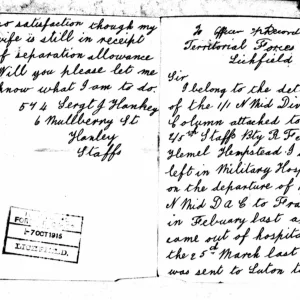 no satisfaction though my
wife is still in receipt
of separation allowance
Will you please let me
know what I am to do.
574 Sergt J Hankey
6 Mullberry St
Hanley
Staffs
7 OCT 1915
LICHFIELD.
To Officer
Territorial Forces
Lichfield
Sir
I belong to the
of the 1/1 N Mid Div
Column attached to
2/5th Staffs Bty R
Hemel Hempstead I
left in Military
on the departure of
N Mid D A C to
in Febuary last
came out of
the 25th March last
was sent to Luton